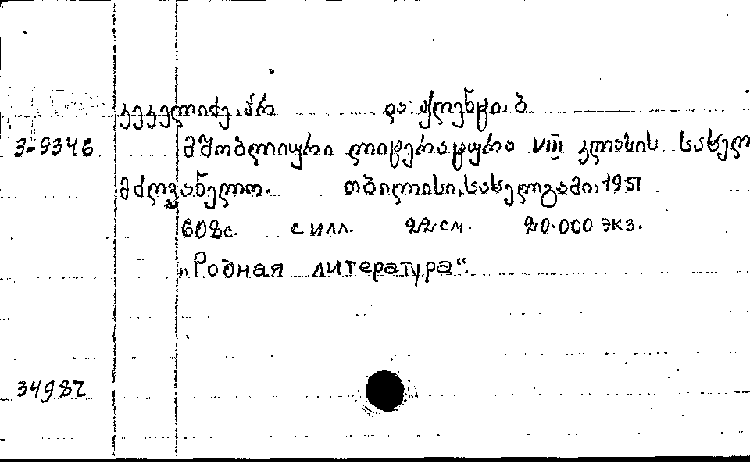 კეკელიძე, კრ. და ჟღენტი, ბ.
3-9346 მშობლიური ლიტერატურა VIII კლასის სახელ
მძღვანელო. თბილისი, სახელგამი, 1951
608с. с илл. 22 см. 20.000 экз.
„Родная литература“.
34982